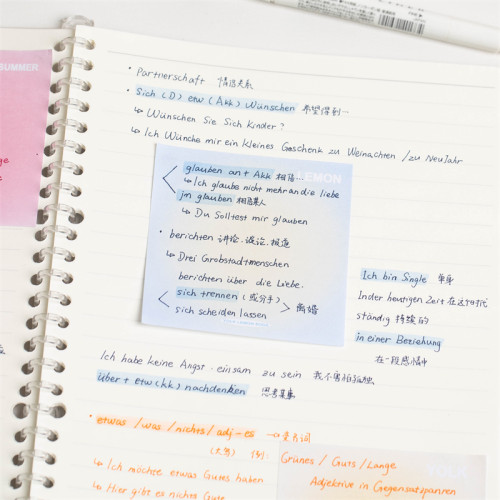 SUMMER
• Partnerschaft 情侣关系
• Sich (D) etw (Akk) Wünschen 希望得到一
↳ Wünschen Sie Sich Kinder?
↳ Ich Wünche mir ein kleines Geschenk zu Weinachten /zu NeuJahr
LEMON
glauben an + Akk 相信...
↳ Ich glaube nicht mehr an die liebe
jm glauben 相信某人
↳ Du Solltest mir glauben
• berichten 讲给、谈论、报道
↳ Drei Grobstadtmenschen
berichten über die Liebe.
sich trennen (或分手)
sich scheiden lassen
离婚
Ich bin Single 单身
In der heutigen Zeit 在这个时代
ständig 持续的
in einer Beziehung
在一段感情中
Ich habe keine Angst, einsam zu sein 我不害怕孤独
über + etw (kk) nachdenken 思考某事
• etwas /was /nichts / adj - es
(大写) 例:
↳ Ich möchte etwas Gutes haben
↳ Hier gibt es nichts Gute
Grünes / Guts / Lange
Adjektive in Gegensatzpaaren